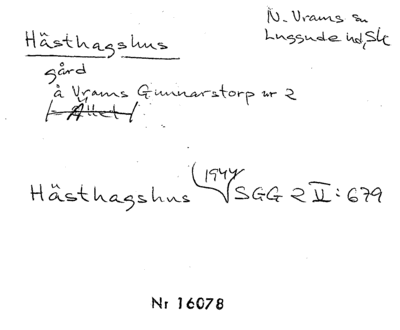 N. Vrams sn
Hästhagshus
Luggude hd, Sk
gård
å Vrams Gunnarstorp nr 2
Hästhagshus 1944 SGG 2 II: 679
Nr 16078